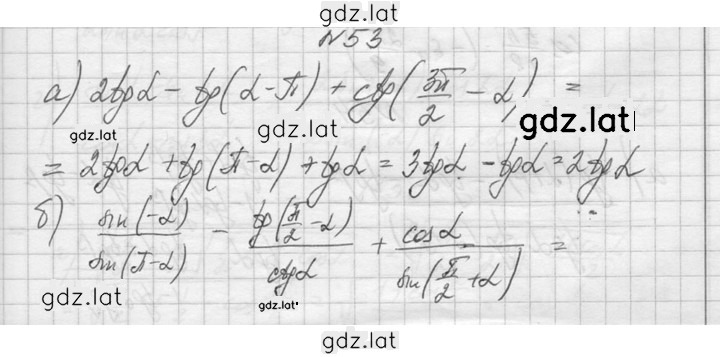 gdz.lat
N53
а) 2tgα - tg(α-π) + ctg(3π/2 - α) =
gdz.lat
gdz.lat
= 2tgα + tg(π-α) + tgα = 3tgα - tgα = 2tgα
б) sin(-α)/sin(π-α) - tg(π/2-α)/ctgα + cosα/sin(π/2+α) =
gdz.lat
gdz.lat
gdz.lat
gdz.lat